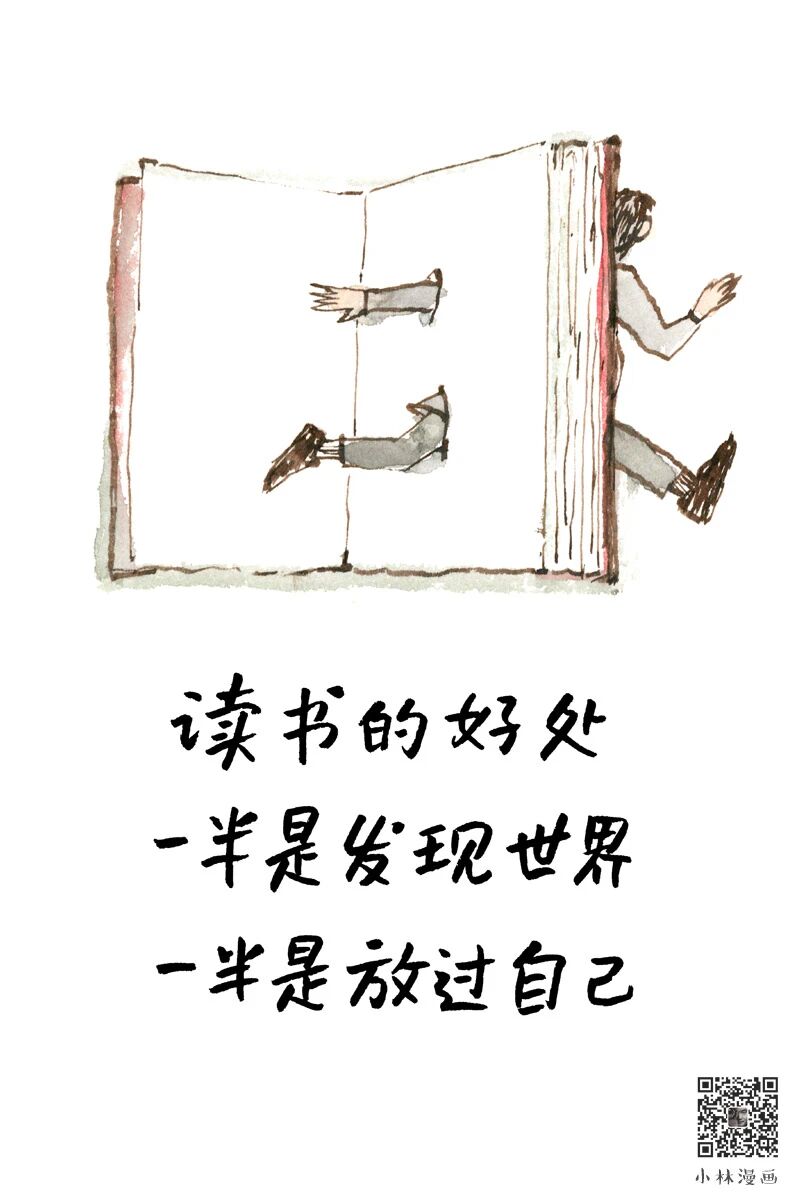 读书的好处
一半是发现世界
一半是放过自己
小林漫画